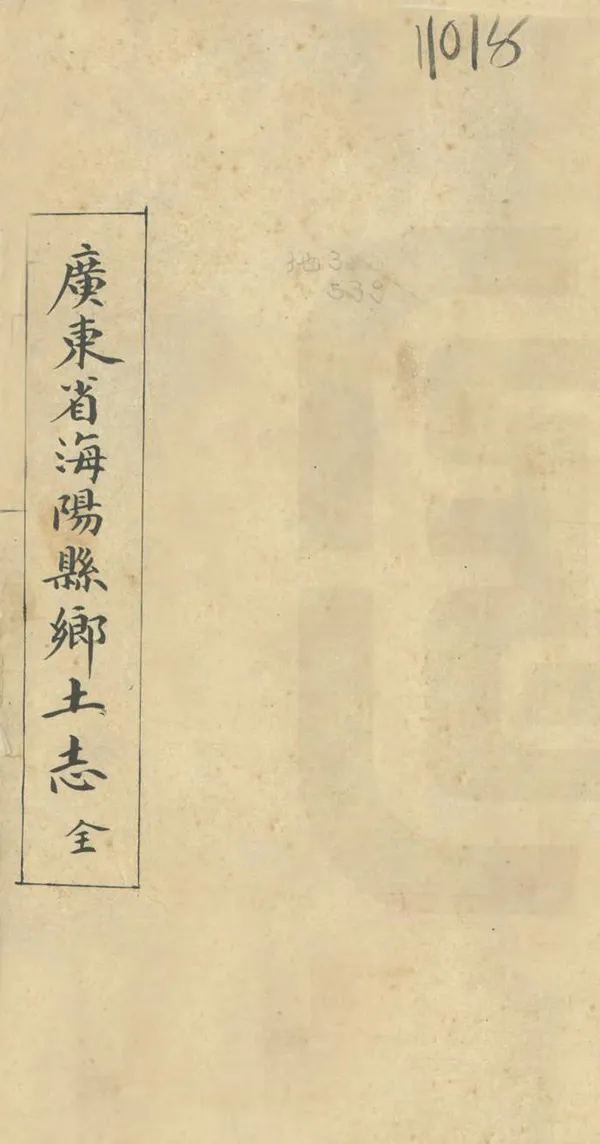 11018
地3
539
廣東省海陽縣鄉土志 全